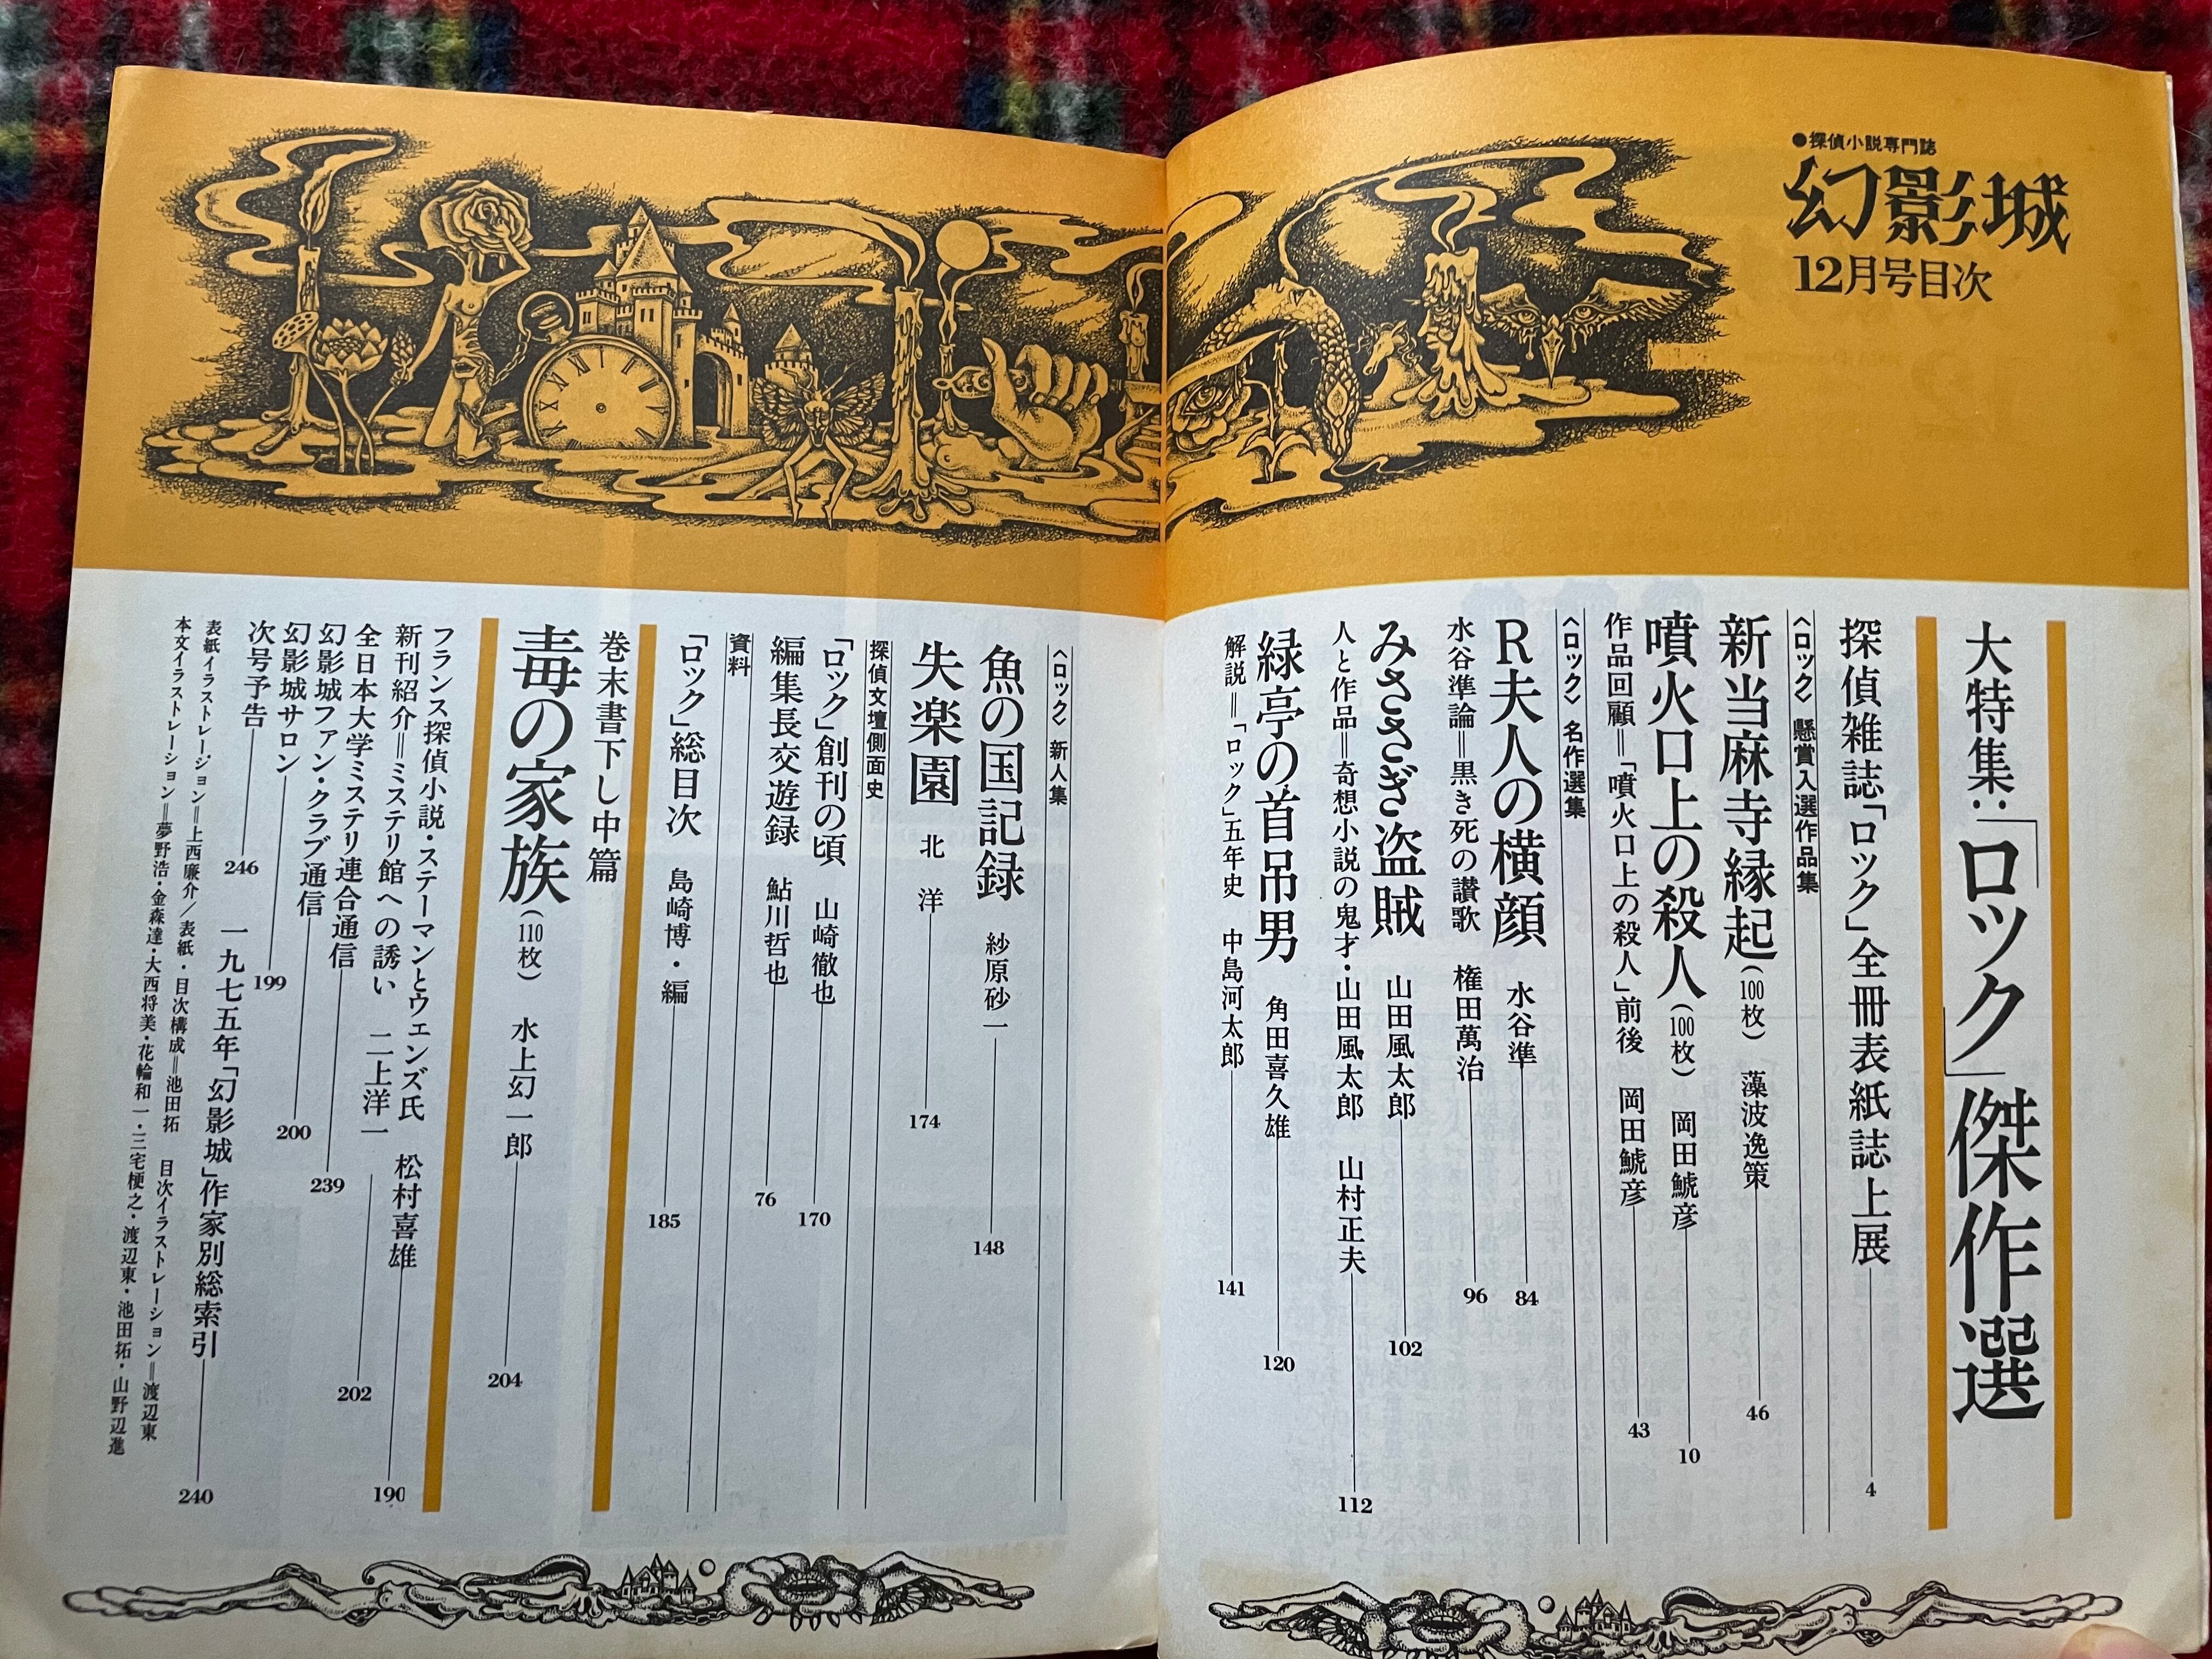 ●探偵小説専門誌
幻影城
12月号目次
大特集：「ロック」傑作選
探偵雑誌「ロック」全冊表紙誌上展 4
〈ロック〉懸賞入選作品集
新当麻寺縁起（100枚） 藻波逸策 46
噴火口上の殺人（100枚） 岡田鯱彦 10
作品回顧＝「噴火口上の殺人」前後 岡田鯱彦 43
〈ロック〉名作選集
R夫人の横顔 水谷準 84
水谷準論＝黒き死の讃歌 権田萬治 96
みささぎ盗賊 山田風太郎 102
人と作品＝奇想小説の鬼才・山田風太郎 山村正夫 112
緑亭の首吊男 角田喜久雄 120
解説＝「ロック」五年史 中島河太郎 141
〈ロック〉新人集
魚の国記録 紗原砂一 148
失楽園 北洋 174
探偵文壇側面史
「ロック」創刊の頃 山崎徹也 170
編集長交遊録 鮎川哲也 76
資料
「ロック」総目次 島崎博・編 185
巻末書下し中篇
毒の家族（110枚） 水上幻一郎 204
フランス探偵小説・ステーマンとウェンズ氏 松村喜雄 190
新刊紹介＝ミステリ館への誘い 二上洋一 202
全日本大学ミステリ連合通信 239
幻影城ファン・クラブ通信 200
幻影城サロン 199
次号予告 246
一九七五年「幻影城」作家別総索引 240
表紙イラストレーション＝上西廉介／表紙・目次構成＝池田拓 目次イラストレーション＝渡辺東
本文イラストレーション＝夢野浩・金森達・大西将美・花輪和一・三宅梗之・渡辺東・池田拓・山野辺進